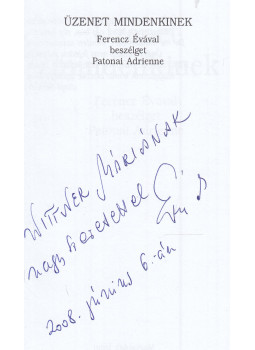 ÜZENET MINDENKINEK
Ferencz Évával
beszélget
Patonai Adrienne
WITTNER MÁRIÁNAK
nagy szeretettel Éva
2008. június 6.-án